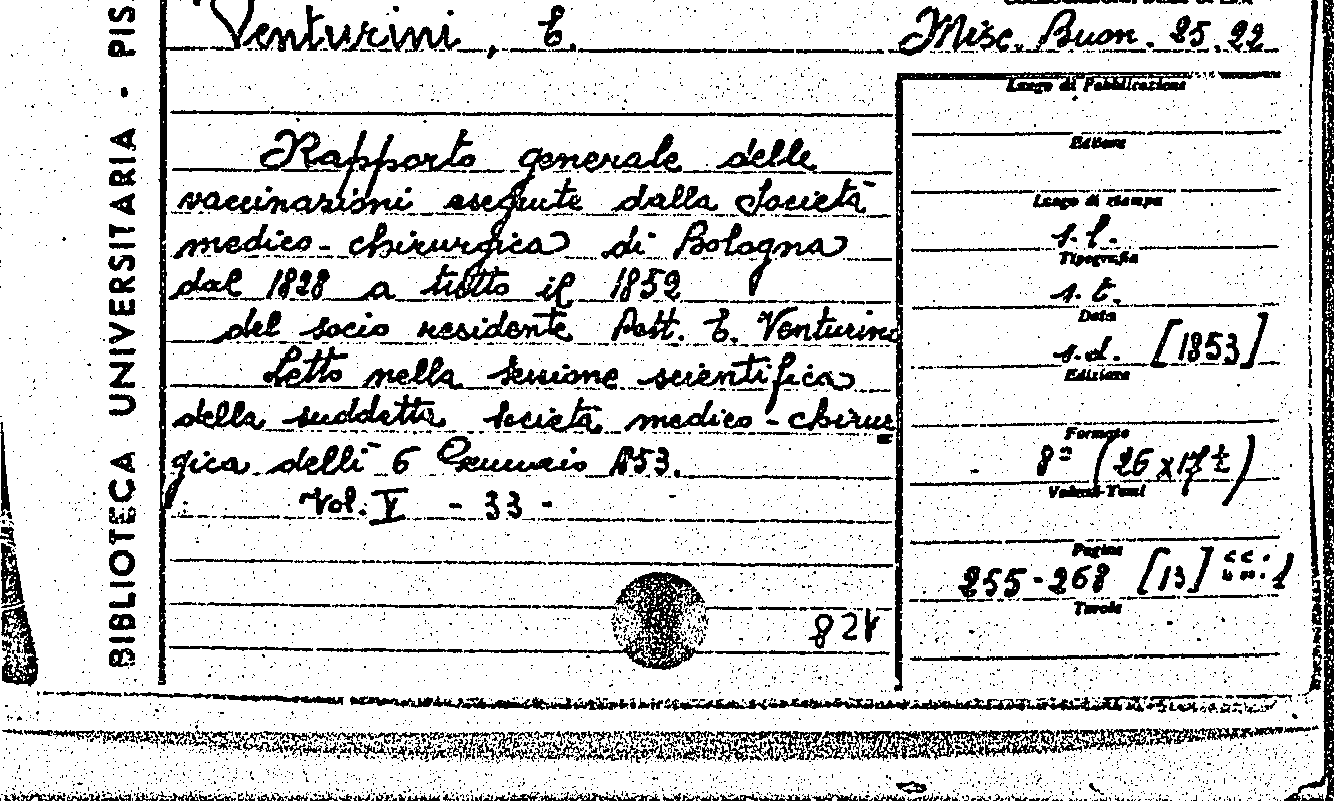 BIBLIOTECA UNIVERSITARIA - PIS
Venturini, E.
Misc. Buon. 25.22
Rapporto generale delle
vaccinazioni eseguite dalla Società
medico-chirurgica di Bologna
dal 1828 a tutto il 1852
del socio residente Dott. E. Venturini
Letto nella sessione scientifica
della suddetta società medico-chirur
gica delli 6 Gennaio 1853.
Vol. V - 33 -
821
Luogo di Pubblicazione
Editore
Luogo di stampa
s.l.
Tipografia
s.t.
Data
s.d. [1853]
Edizione
Formato
8º (26 x 17 ½)
Volumi-Tomi
Pagine
255-268 [13]
Tavole